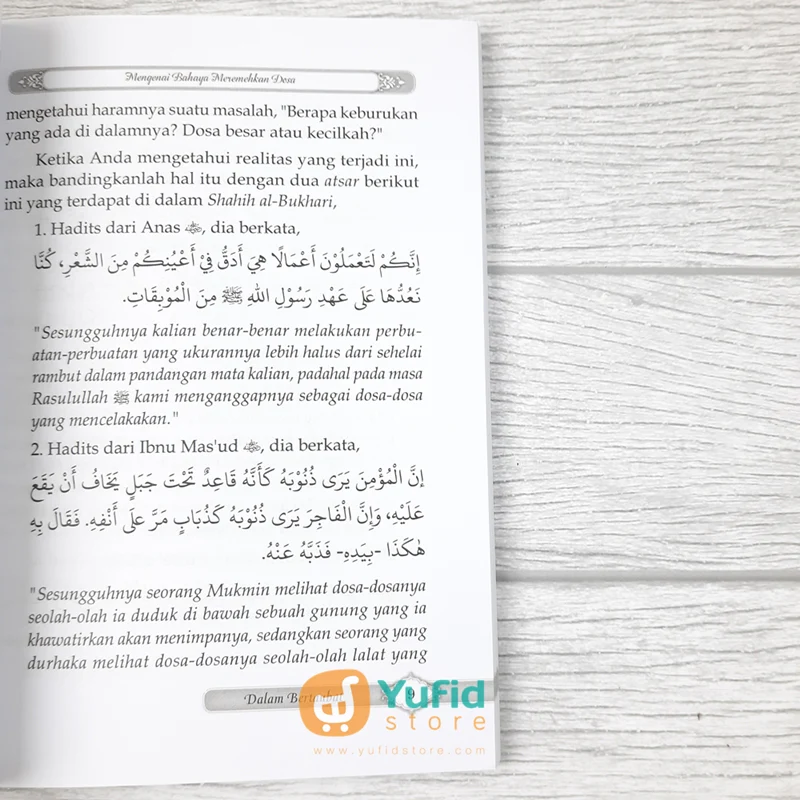 Mengenai Bahaya Meremehkan Dosa
mengetahui haramnya suatu masalah, "Berapa keburukan
yang ada di dalamnya? Dosa besar atau kecilkah?"
Ketika Anda mengetahui realitas yang terjadi ini,
maka bandingkanlah hal itu dengan dua atsar berikut
ini yang terdapat di dalam Shahih al-Bukhari,
1. Hadits dari Anas , dia berkata,
إِنَّكُمْ لَتَعْمَلُوْنَ أَعْمَالًا هِيَ أَدَقُّ فِيْ أَعْيُنِكُمْ مِنَ الشَّعْرِ، كُنَّا
نَعُدُّهَا عَلَى عَهْدِ رَسُوْلِ اللهِ ﷺ مِنَ الْمُوْبِقَاتِ.
"Sesungguhnya kalian benar-benar melakukan perbu-
atan-perbuatan yang ukurannya lebih halus dari sehelai
rambut dalam pandangan mata kalian, padahal pada masa
Rasulullah ﷺ kami menganggapnya sebagai dosa-dosa
yang mencelakakan."
2. Hadits dari Ibnu Mas'ud , dia berkata,
إِنَّ الْمُؤْمِنَ يَرَى ذُنُوْبَهُ كَأَنَّهُ قَاعِدٌ تَحْتَ جَبَلٍ يَخَافُ أَنْ يَقَعَ
عَلَيْهِ، وَإِنَّ الْفَاجِرَ يَرَى ذُنُوْبَهُ كَذُبَابٍ مَرَّ عَلَى أَنْفِهِ. فَقَالَ بِهِ
هٰكَذَا -بِيَدِهِ- فَذَبَّهُ عَنْهُ.
"Sesungguhnya seorang Mukmin melihat dosa-dosanya
seolah-olah ia duduk di bawah sebuah gunung yang ia
khawatirkan akan menimpanya, sedangkan seorang yang
durhaka melihat dosa-dosanya seolah-olah lalat yang
Dalam 9
Yufid
store
www.yufidstore.com